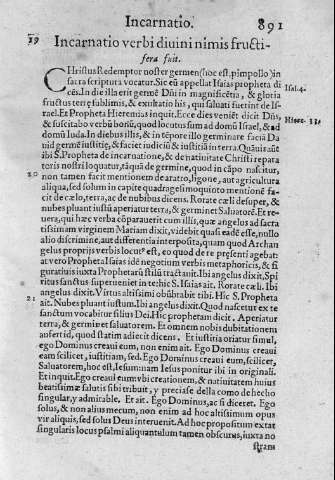 Incarnatio. 891
19 Incarnatio verbi diuini nimis fructi-
fera fuit.
CHristus Redemptor noster germen (hoc est, pimpollo) in
sacra scriptura vocatur. Sic eũ appellat Isaias propheta di Isai.4.
cẽs. In die illa erit germẽ Dñi in magnificẽtia, & gloria
fructus terrę sublimis, & exultatio his, qui saluati fuerint de Is-
rael. Et Propheta Hieremias inquit. Ecce dies veniẽt dicit Dñs, Hiere. 33.
& suscitabo verbũ bonũ, quod locutus sum ad domũ Israel, & ad
domũ Iuda. In diebus illis, & in tẽpore illo germinare faciã Da
uid germẽ iustitię, & faciet iudiciũ & iustitiã in terra. Quãuis aũt
ibi S. Propheta de incarnatione, & de natiuitate Christi repara
toris nostri loquatur, tãquã de germine, quod in cãpo nascitur,
20 non tamen facit mentionem de aratro, ligone, aut agricultura
aliqua, sed solum in capite quadragesimoquinto mentionẽ fa-
cit de cælo, terra, ac de nubibus dicens. Rorate cæli desuper, &
nubes pluant iustũ aperiatur terra, & germinet Saluatorẽ. Et re-
uera, qui hæc verba cõparauerit cum illis, quæ angelus ad sacra
tissimam virginem Mariam dixit, videbit quasi eadẽ esse, nullo
alio discrimine, aut differentia interposita, quam quod Archan
gelus proprijs verbis locutꝰ est, eo quod de re pręsenti agebat:
at vero Propheta Isaias idẽ negotium verbis metaphoricis, & fi
guratiuis iuxta Prophetarũ stilũ tractauit. Ibi angelus dixit. Spi
ritus sanctus superueniet in te: hic S. Isaias ait. Rorate cæli. Ibi
angelus dixit. Virtus altissimi obũbrabit tibi. Hic S. Propheta
21 ait. Nubes pluant iustum. Ibi angelus dixit. Quod nascetur ex te
sanctum vocabitur filius Dei. Hic propheta m dicit. Aperiatur
terra, & germinet saluatorem. Et omnem nobis dubitationem
aufert id, quod statim adiecit dicens. Et iustitia oriatur simul,
ego Dominus creaui eum, non enim ait. Ego Dominus creaui
eam scilicet, iustitiam, sed. Ego Dominus creaui eum, scilicet,
Saluatorem, hoc est, Iesum: nam Iesus ponitur ibi in originali.
Et inquit. Ego creaui eum: vbi creationem, & natiuitatem huius
beatissimæ salutis sibi tribuit, y preciase della como de hecho
singular, y admirable. Et ait. Ego Dominus, ac si diceret. Ego
solus, & non alius mecum, non enim ad hoc altissimum opus
vir aliquis, sed solus Deus interuenit. Ad hoc propositum extat
singularis locus psalmi aliquantulum tamen obscurus, iuxta no
stram